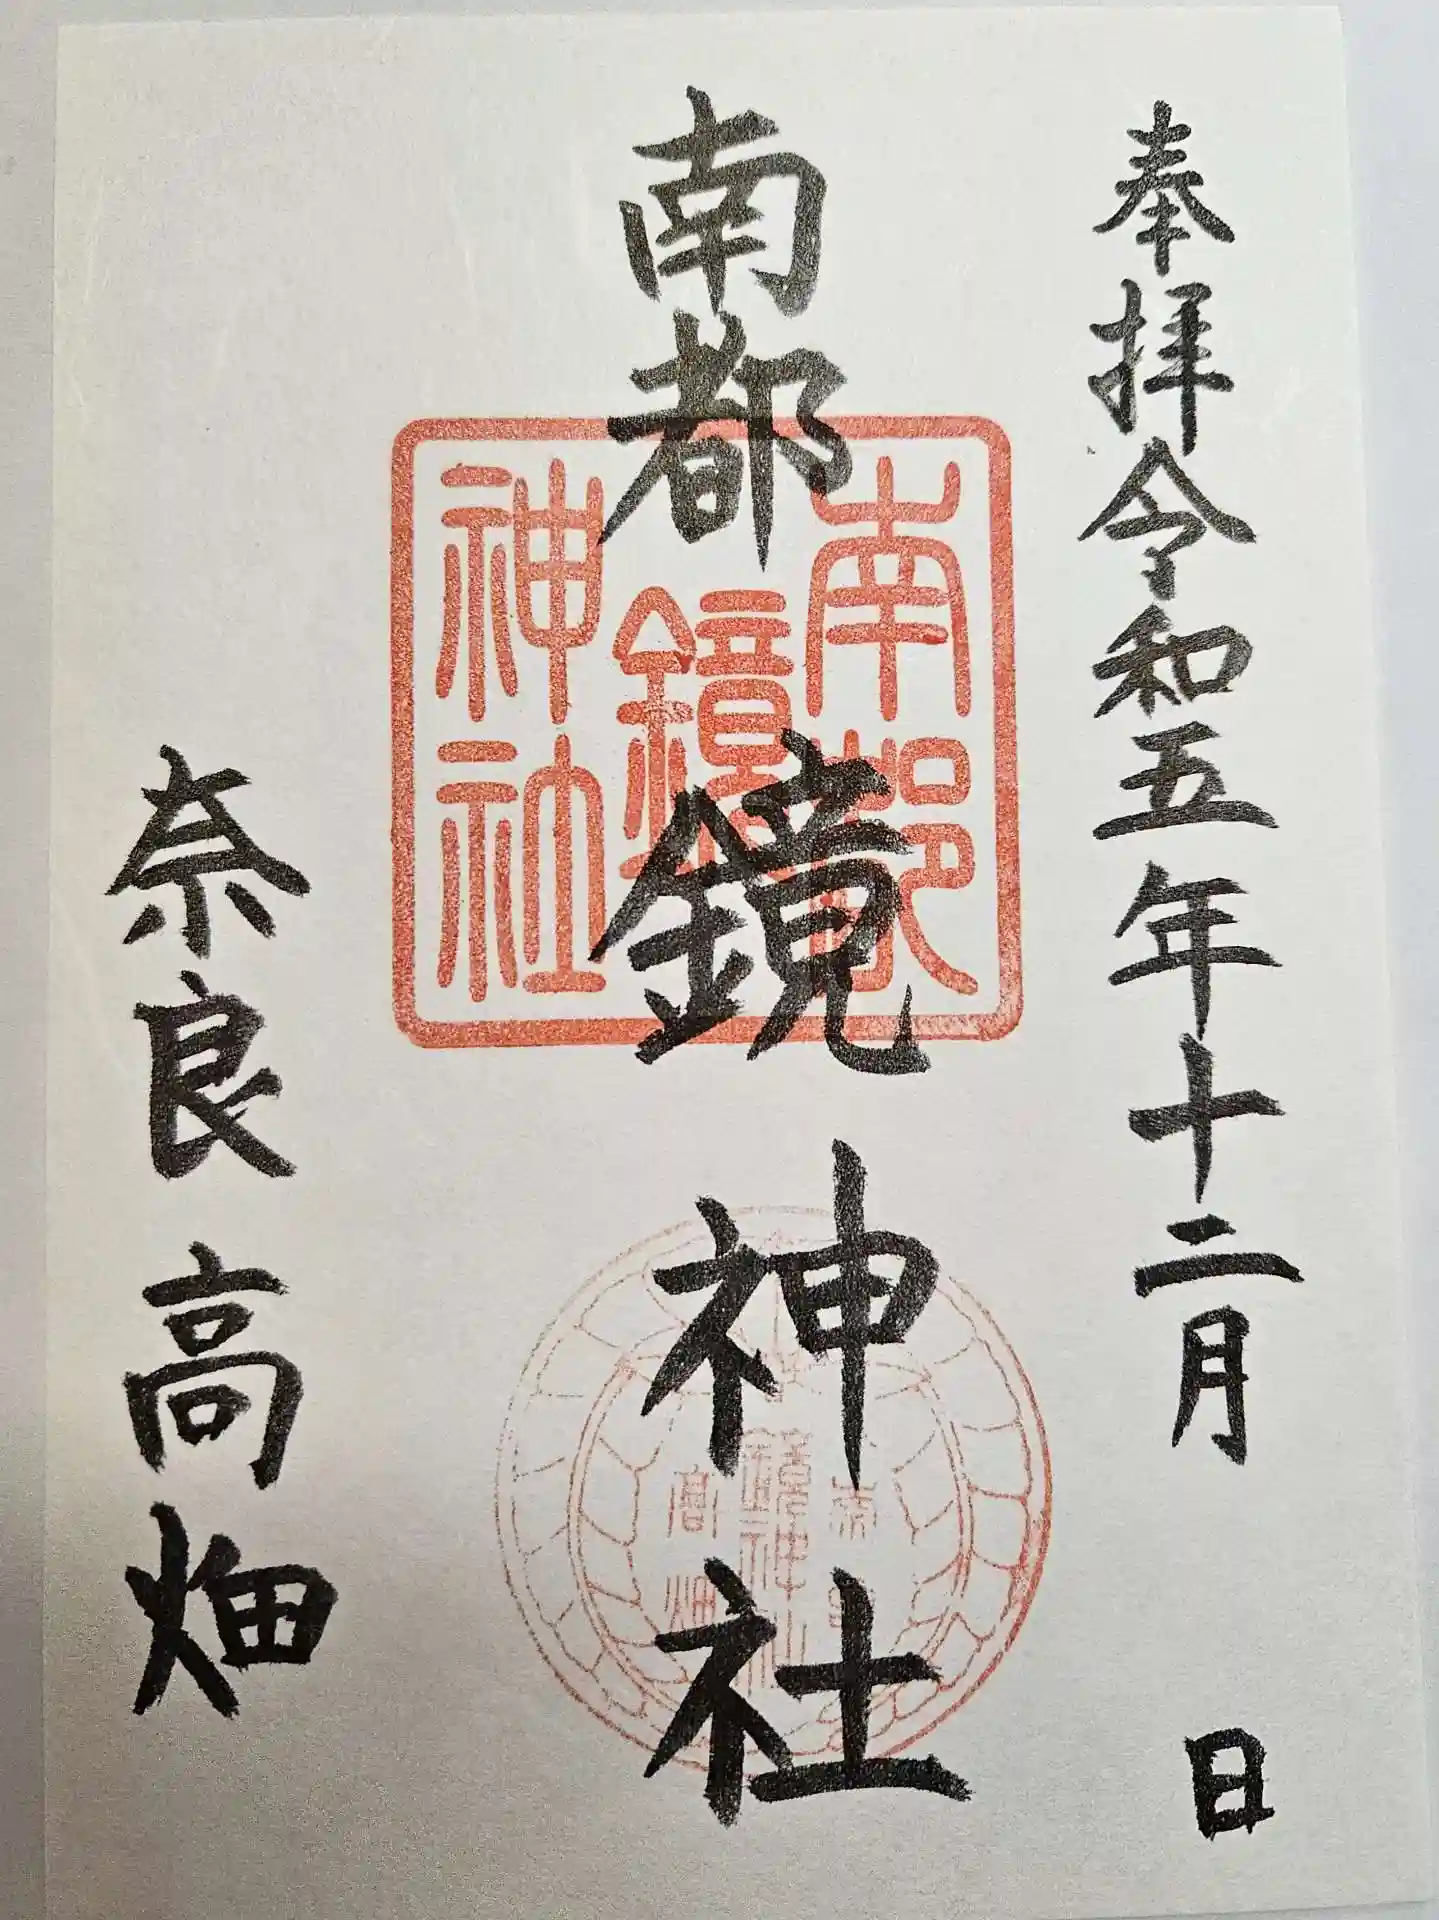 奉拝令和五年十二月　日
南都鏡神社
奈良高畑
南都
鏡
神社
鏡神社
高畑